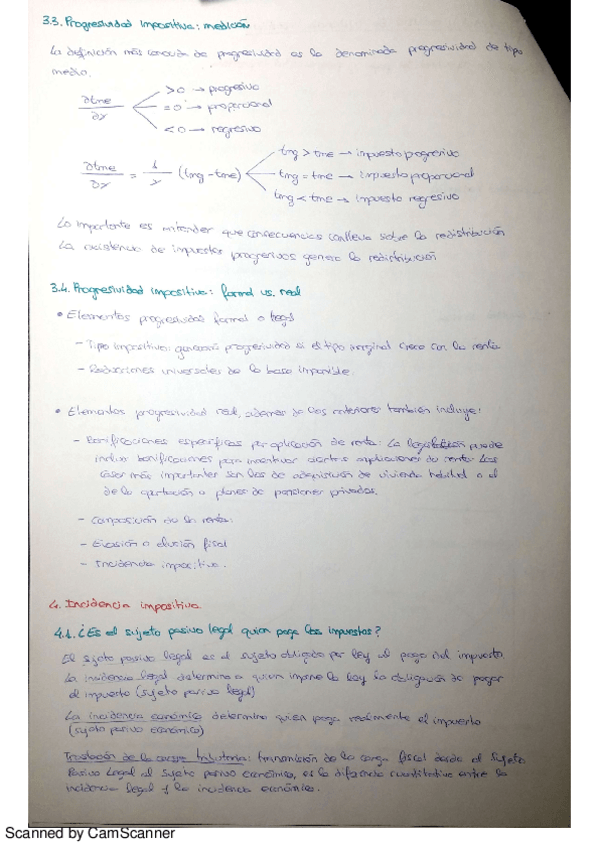 3.3. Progresividad impositiva: medición
La definición más conocida de progresividad es la denominada progresividad de tipo
medio.
∂tme/∂y
>0 → progresivo
=0 → proporcional
<0 → regresivo
∂tme/∂y = 1/y (tmg - tme)
tmg > tme → impuesto progresivo
tmg = tme → impuesto proporcional
tmg < tme → impuesto regresivo
Lo importante es entender que consecuencias conlleva sobre la redistribución
La existencia de impuestos progresivos genera la redistribución
3.4. Progresividad impositiva: formal vs. real
• Elementos progresividad formal o legal
- Tipo impositivo: generará progresividad si el tipo marginal crece con la renta
- Reducciones universales de la base imponible.
• Elementos progresividad real, además de los anteriores también incluye:
- Bonificaciones específicas por aplicación de renta: La legislación puede
incluir bonificaciones para incentivar ciertas aplicaciones de renta. Los
casos más importantes son las de adquisición de vivienda habitual o el
de la aportación a planes de pensiones privados.
- Composición de la renta.
- Evasión o elusión fiscal
- Incidencia impositiva.
4. Incidencia impositiva
4.1. ¿Es el sujeto pasivo legal quien paga los impuestos?
El sujeto pasivo legal es el sujeto obligado por ley al pago del impuesto
La incidencia legal determina a quien impone la ley la obligación de pagar
el impuesto (sujeto pasivo legal)
La incidencia económica determina quien paga realmente el impuesto
(sujeto pasivo económico)
Traslación de la carga tributaria: transmisión de la carga fiscal desde el Sujeto
Pasivo Legal al Sujeto pasivo económico, es la diferencia cuantitativa entre la
incidencia legal y la incidencia económica.
Scanned by CamScanner